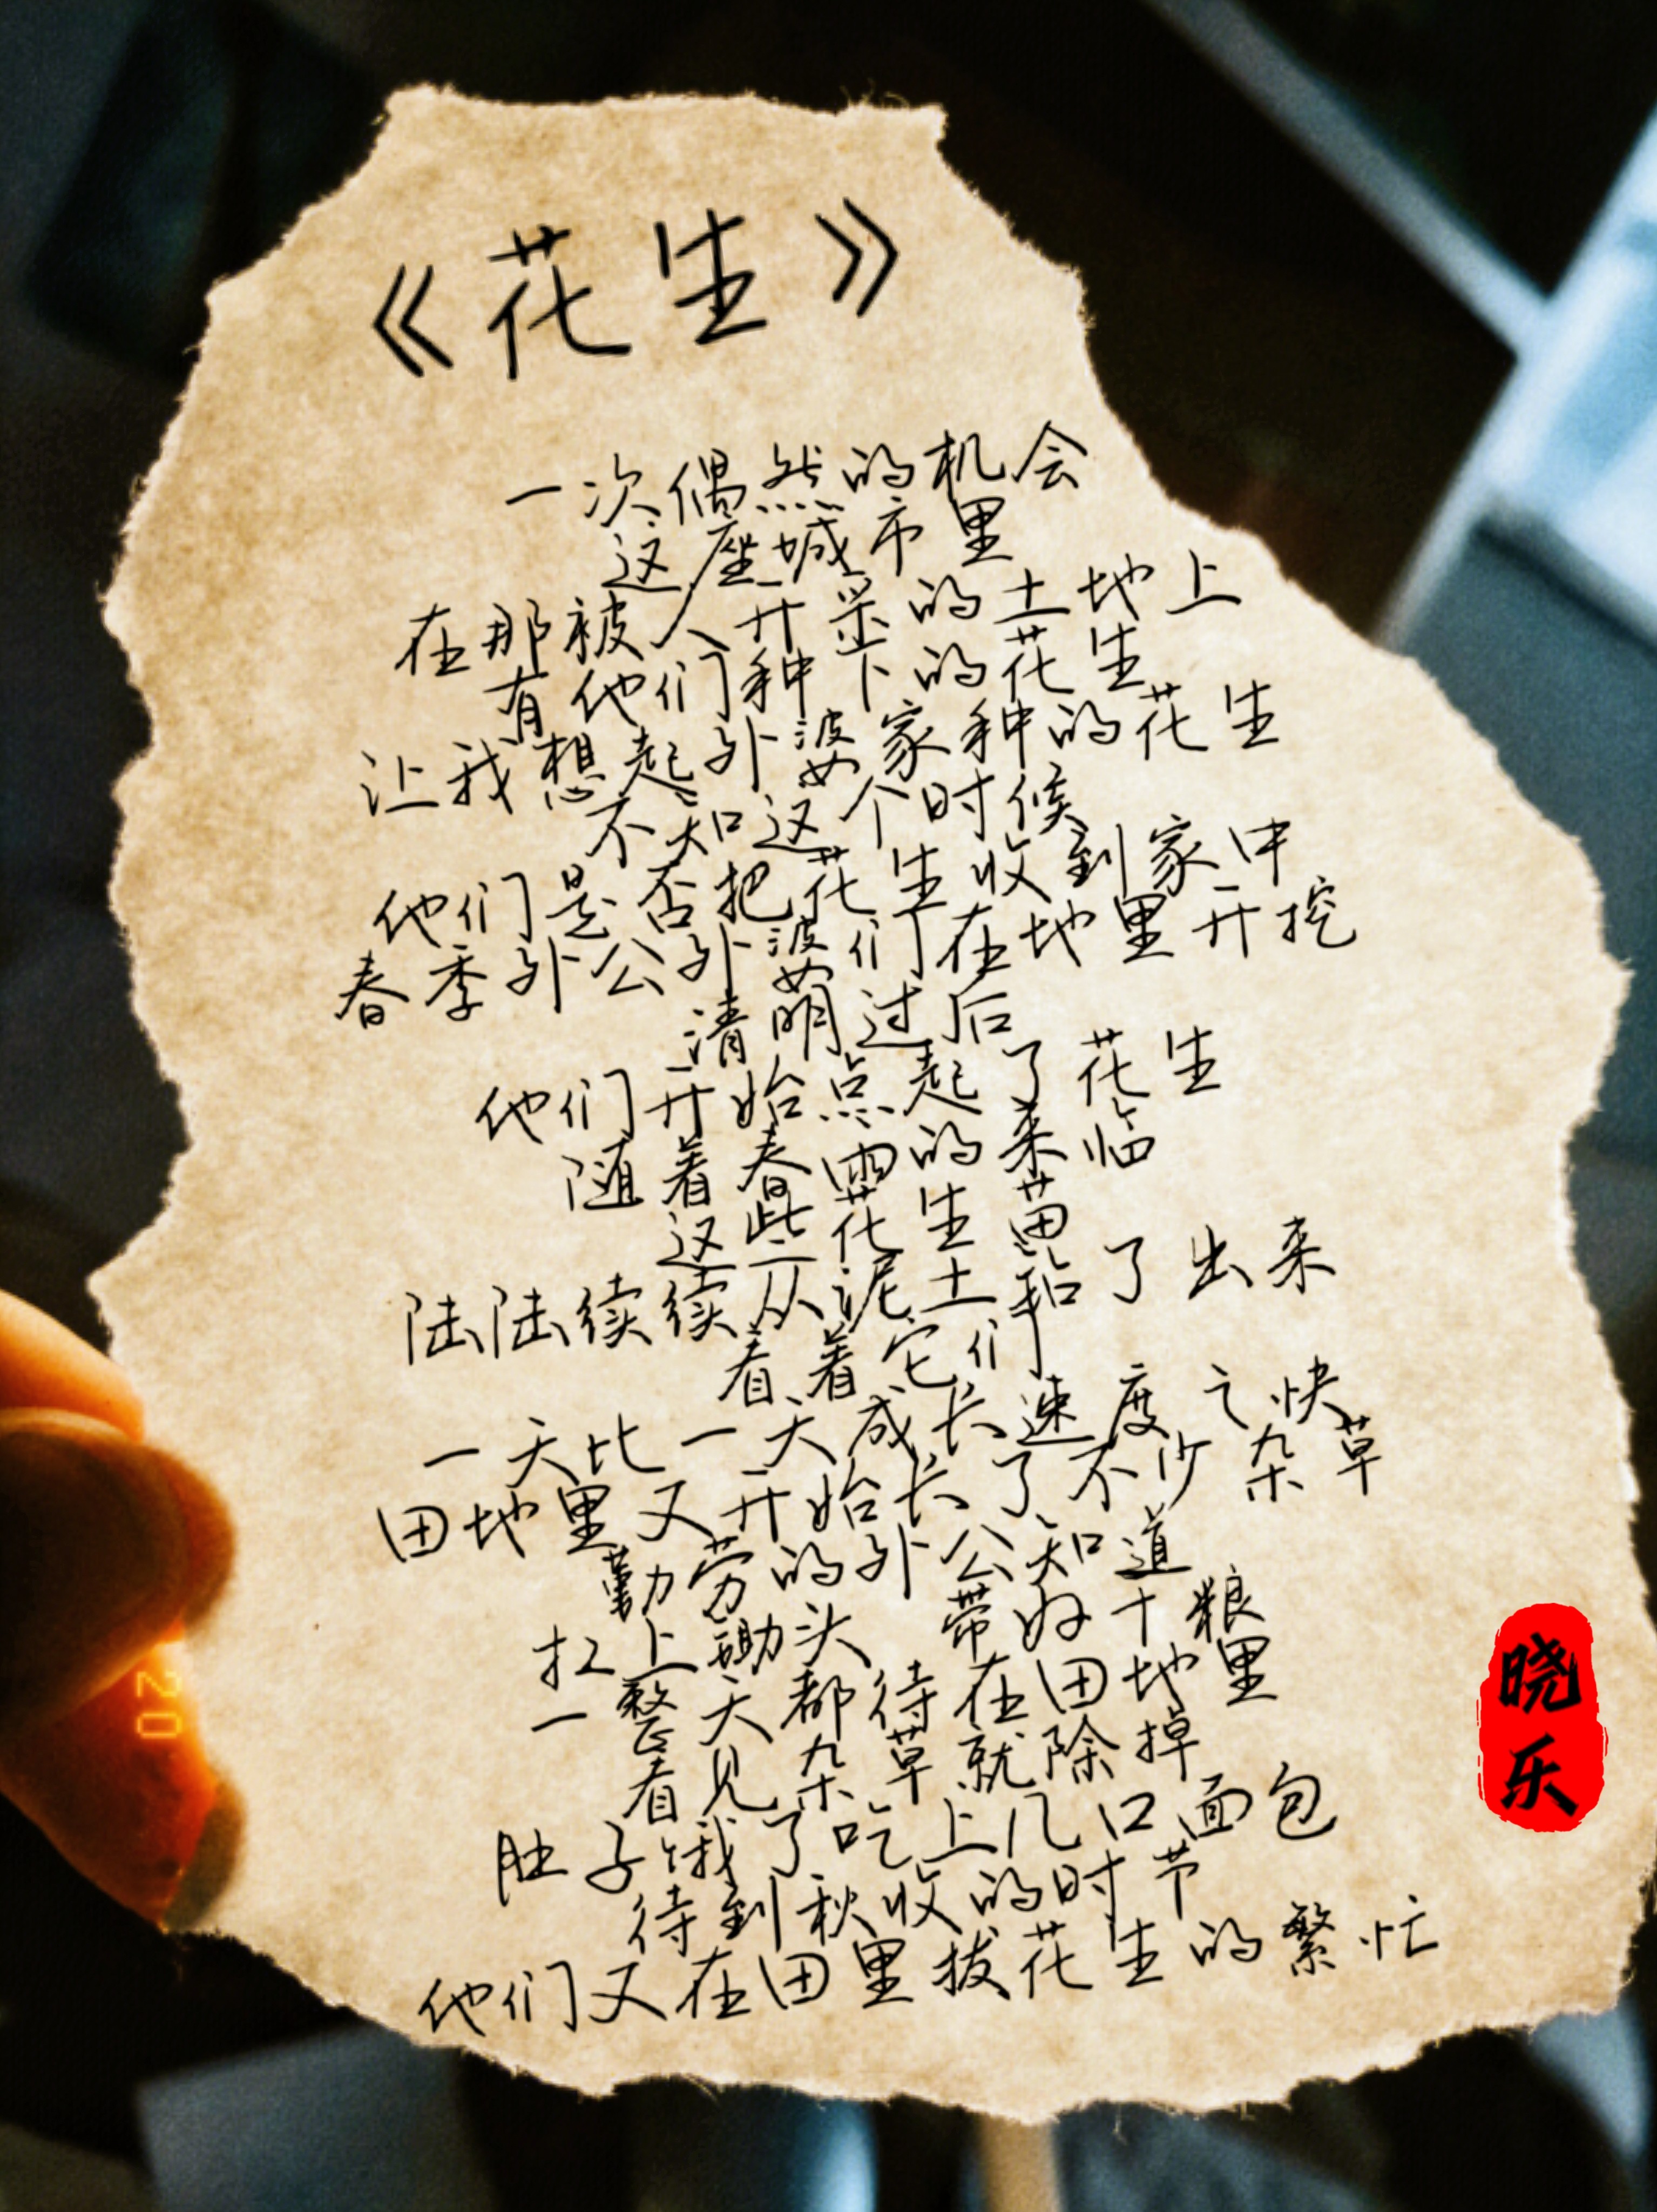 《花生》
一次偶然的机会
这座城市里
在那被人开采的土地上
有他们种下的花生
让我想起外婆家种的花生
不知这个时候
他们是否把花生收到家中
春季外公外婆们在地里开挖
清明过后
他们开始点起了花生
随着春雨的来临
这些花生苗
陆陆续续从泥土钻了出来
看着它们
一天比一天成长速度之快
田地里又开始长了不少杂草
勤劳的外公知道
扛上锄头 带好干粮
一整天都待在田地里
看见杂草就除掉
肚子饿了吃上几口面包
待到秋收的时节
他们又在田里拔花生的繁忙
晓乐
20